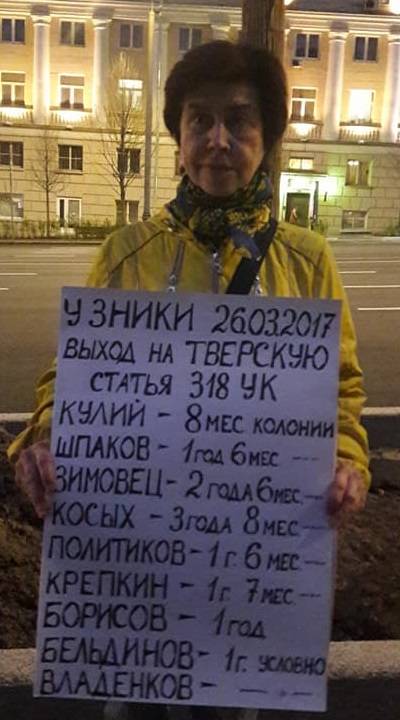 УЗНИКИ 26.03.2017
ВЫХОД НА ТВЕРСКУЮ
СТАТЬЯ 318 УК
КУЛИЙ - 8 МЕС. КОЛОНИИ
ШПАКОВ - 1 ГОД 6 МЕС. ---
ЗИМОВЕЦ - 2 ГОДА 6 МЕС. --
КОСЫХ - 3 ГОДА 8 МЕС. --
ПОЛИТИКОВ - 1 г. 6 МЕС. --
КРЕПКИН - 1 г. 7 МЕС. ---
БОРИСОВ - 1 ГОД
БЕЛЬДИНОВ - 1 г. УСЛОВНО
ВЛАДЕНКОВ - — " —